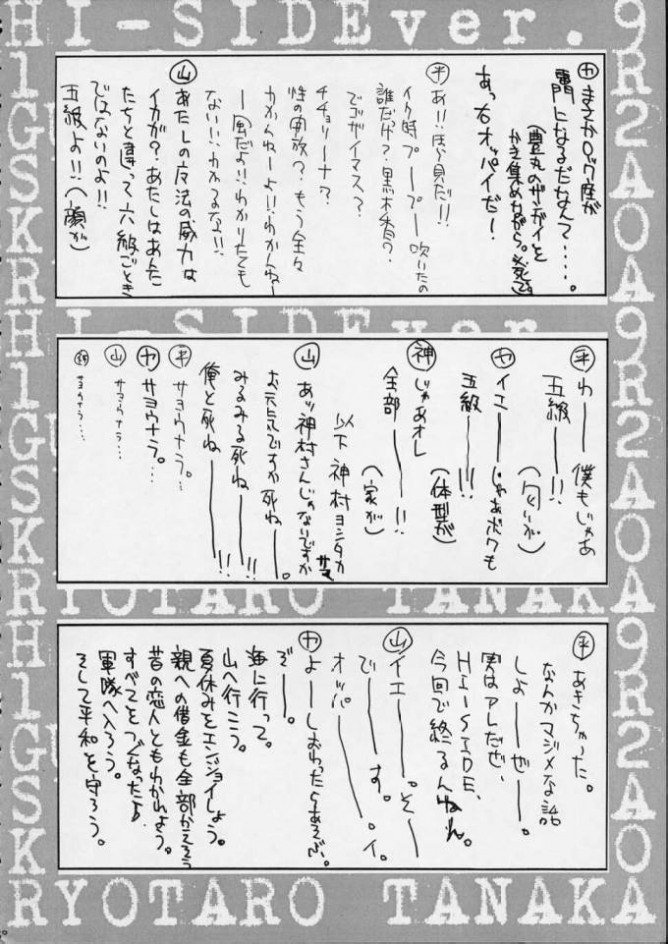 HI-SIDEver.
9R2A0A9R2A0A
H1GSKRH1GSKR
㋳ まさかロック座が
専門になるだなんて‥‥。
(豊丸のザンガイを
かき集めながら。
あっ右オッパイだー!
㋪ あ!!
イク時プープー吹いたの
誰だっけ?黒木香?
でゴザイマス?
チチョリーナ?
性の解放?もう全々
わかんねーよ!!わかんねー
!!わかりたくも
ない!!わかるな!!
㊤ あたしの反法の威力は
イカが?あたしはあんた
たちと違って六級ごとき
ではないのよ!!
五級よ!!(顔が)
HI-SIDEver.
㋪ わ――僕もじゃあ
五級――!!
(匂いが)
㋳ イエ――じゃあボクも
五級――!!!
(体型が)
㊙ じゃあオレ
全部――!!
(家が)
以下 神村ヨシタカ
㊤ あッ神村さんじゃないですか
お元気ですか死ね――。
みるみる死ね――!!
俺と死ね――!!
サヨウナラ。‥‥
㋳ サヨウナラ。‥
サヨウナラ‥‥
サヨウナラ‥
RYOTARO TANAKA
あきちゃった。
なんかマジメな話
しよ――ぜ――。
実はアレだぜ、
HI-SIDE、
今回で終るんだね。
イエ――。そ――
で――す。
オッパ――。イ。
㋳ よ――しおわったらあそぶ
ぞ――。
海に行って。
山へ行こう。
夏休みをエンジョイしよう。
親への借金も全部かえそう
昔の恋人ともわかれよう。
すべてをつぐなったら
軍隊へ入ろう。
そして平和を守ろう。
RYOTARO TANAKA